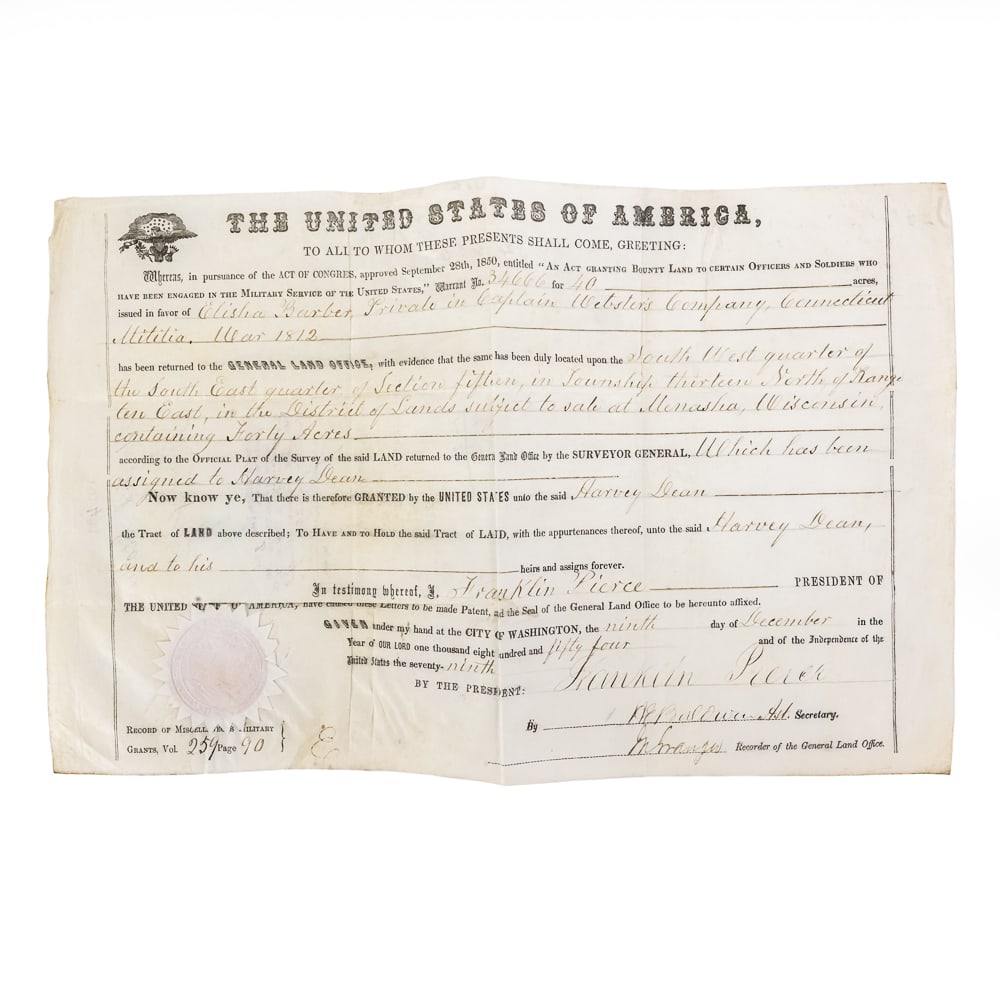 THE UNITED STATES OF AMERICA,
TO ALL TO WHOM THESE PRESENTS SHALL COME, GREETING:
Whereas, in pursuance of the ACT OF CONGRES, approved September 28th, 1850, entitled "AN ACT GRANTING BOUNTY LAND TO CERTAIN OFFICERS AND SOLDIERS WHO
HAVE BEEN ENGAGED IN THE MILITARY SERVICE OF THE UNITED STATES," Warrant No. 34666 for 40 acres,
issued in favor of Elisha Barber, Private in Captain Websters Company, Connecticut
Militia. War 1812
has been returned to the GENERAL LAND OFFICE, with evidence that the same has been duly located upon the South West quarter of
the South East quarter of Section fifteen, in Township thirteen North of Range
ten East, in the District of Lands subject to sale at Menasha, Wisconsin,
containing Forty Acres
according to the OFFICIAL PLAT of the Survey of the said LAND returned to the General Land Office by the SURVEYOR GENERAL, Which has been
assigned to Harvey Dean
Now know ye, That there is therefore GRANTED by the UNITED STATES unto the said Harvey Dean
the Tract of LAND above described; TO HAVE AND TO HOLD the said Tract of LAND, with the appurtenances thereof, unto the said Harvey Dean,
and to his heirs and assigns forever.
In testimony whereof, I, Franklin Pierce PRESIDENT OF
THE UNITED OF AMERICA, have caused these Letters to be made Patent, and the Seal of the General Land Office to be hereunto affixed.
GIVEN under my hand at the CITY OF WASHINGTON, the ninth day of December in the
Year of OUR LORD one thousand eight hundred and fifty four and of the Independence of the
United States the seventy-ninth
BY THE PRESIDENT: Franklin Pierce
By Baldwin Ast. Secretary.
Granger Recorder of the General Land Office.
RECORD OF MILITARY
GRANTS, Vol. 259 Page 90